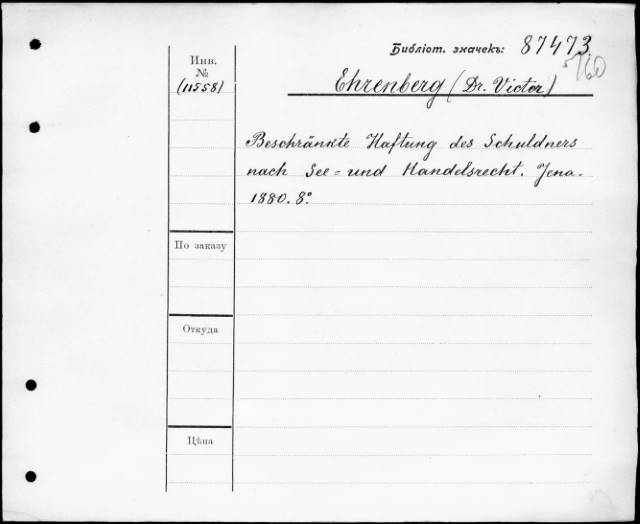 Библіот. значекъ: 87473
760
Инв.
№
(11558)
Ehrenberg (Dr. Victor)
Beschränkte Haftung des Schuldners
nach See = und Handelsrecht. Jena.
1880. 8°.
По заказу
Откуда
Цѣна